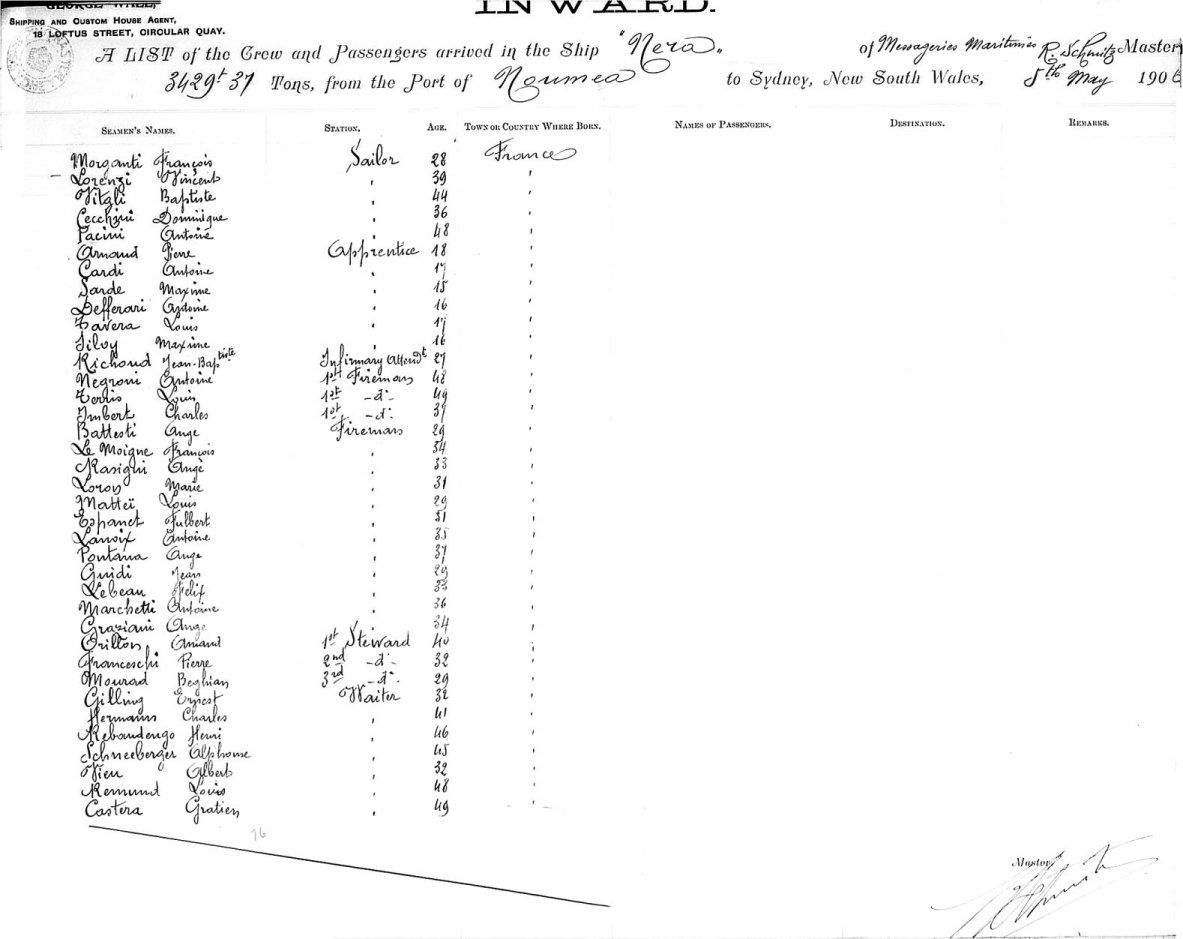 INWARD.
GEORGE WALL,
SHIPPING AND CUSTOM HOUSE AGENT,
18 LOFTUS STREET, CIRCULAR QUAY.
A LIST of the Crew and Passengers arrived in the Ship "Nera" of Messageries Maritimes R. Schmitz Master
3429t 37 Tons, from the Port of Noumea to Sydney, New South Wales, 8th May 1906
SEAMEN'S NAMES. STATION. AGE. TOWN OR COUNTRY WHERE BORN. NAMES OF PASSENGERS. DESTINATION. REMARKS.
Morganti François Sailor 28 France
Lorenzi Vincent " 39 "
Vitali Baptiste " 44 "
Cecchini Dominique " 36 "
Pacini Antoine " 48 "
Arnaud Pierre Apprentice 18 "
Cardi Antoine " 17 "
Sarde Maxime " 15 "
Defferari Antoine " 16 "
Tavera Louis " 17 "
Silvy Maxime " 16 "
Richaud Jean-Baptiste Infirmary Attendt 27 "
Negroni Antoine 1st Fireman 48 "
Terris Louis 1st -d°- 49 "
Imbert Charles 1st -d°- 37 "
Battesti Ange Fireman 29 "
Le Moigne François " 34 "
Rasigni Ange " 33 "
Loron Marie " 31 "
Matteï Louis " 29 "
Espanet Fulbert " 31 "
Lanoix Antoine " 35 "
Pontana Ange " 37 "
Guidi Jean " 29 "
Lebeau Felix " 33 "
Marchetti Antoine " 36 "
Graziani Ange " 34 "
Orillon Amand 1st Steward 40 "
Franceschi Pierre 2nd -d°- 32 "
Mourad Beghian 3rd -d°- 29 "
Gilling Ernest Waiter 32 "
Hermann Charles " 41 "
Rebandengo Henri " 46 "
Schneeberger Alphonse " 45 "
Vieu Albert " 32 "
Remund Louis " 48 "
Castera Gratien " 49 "
76
Master